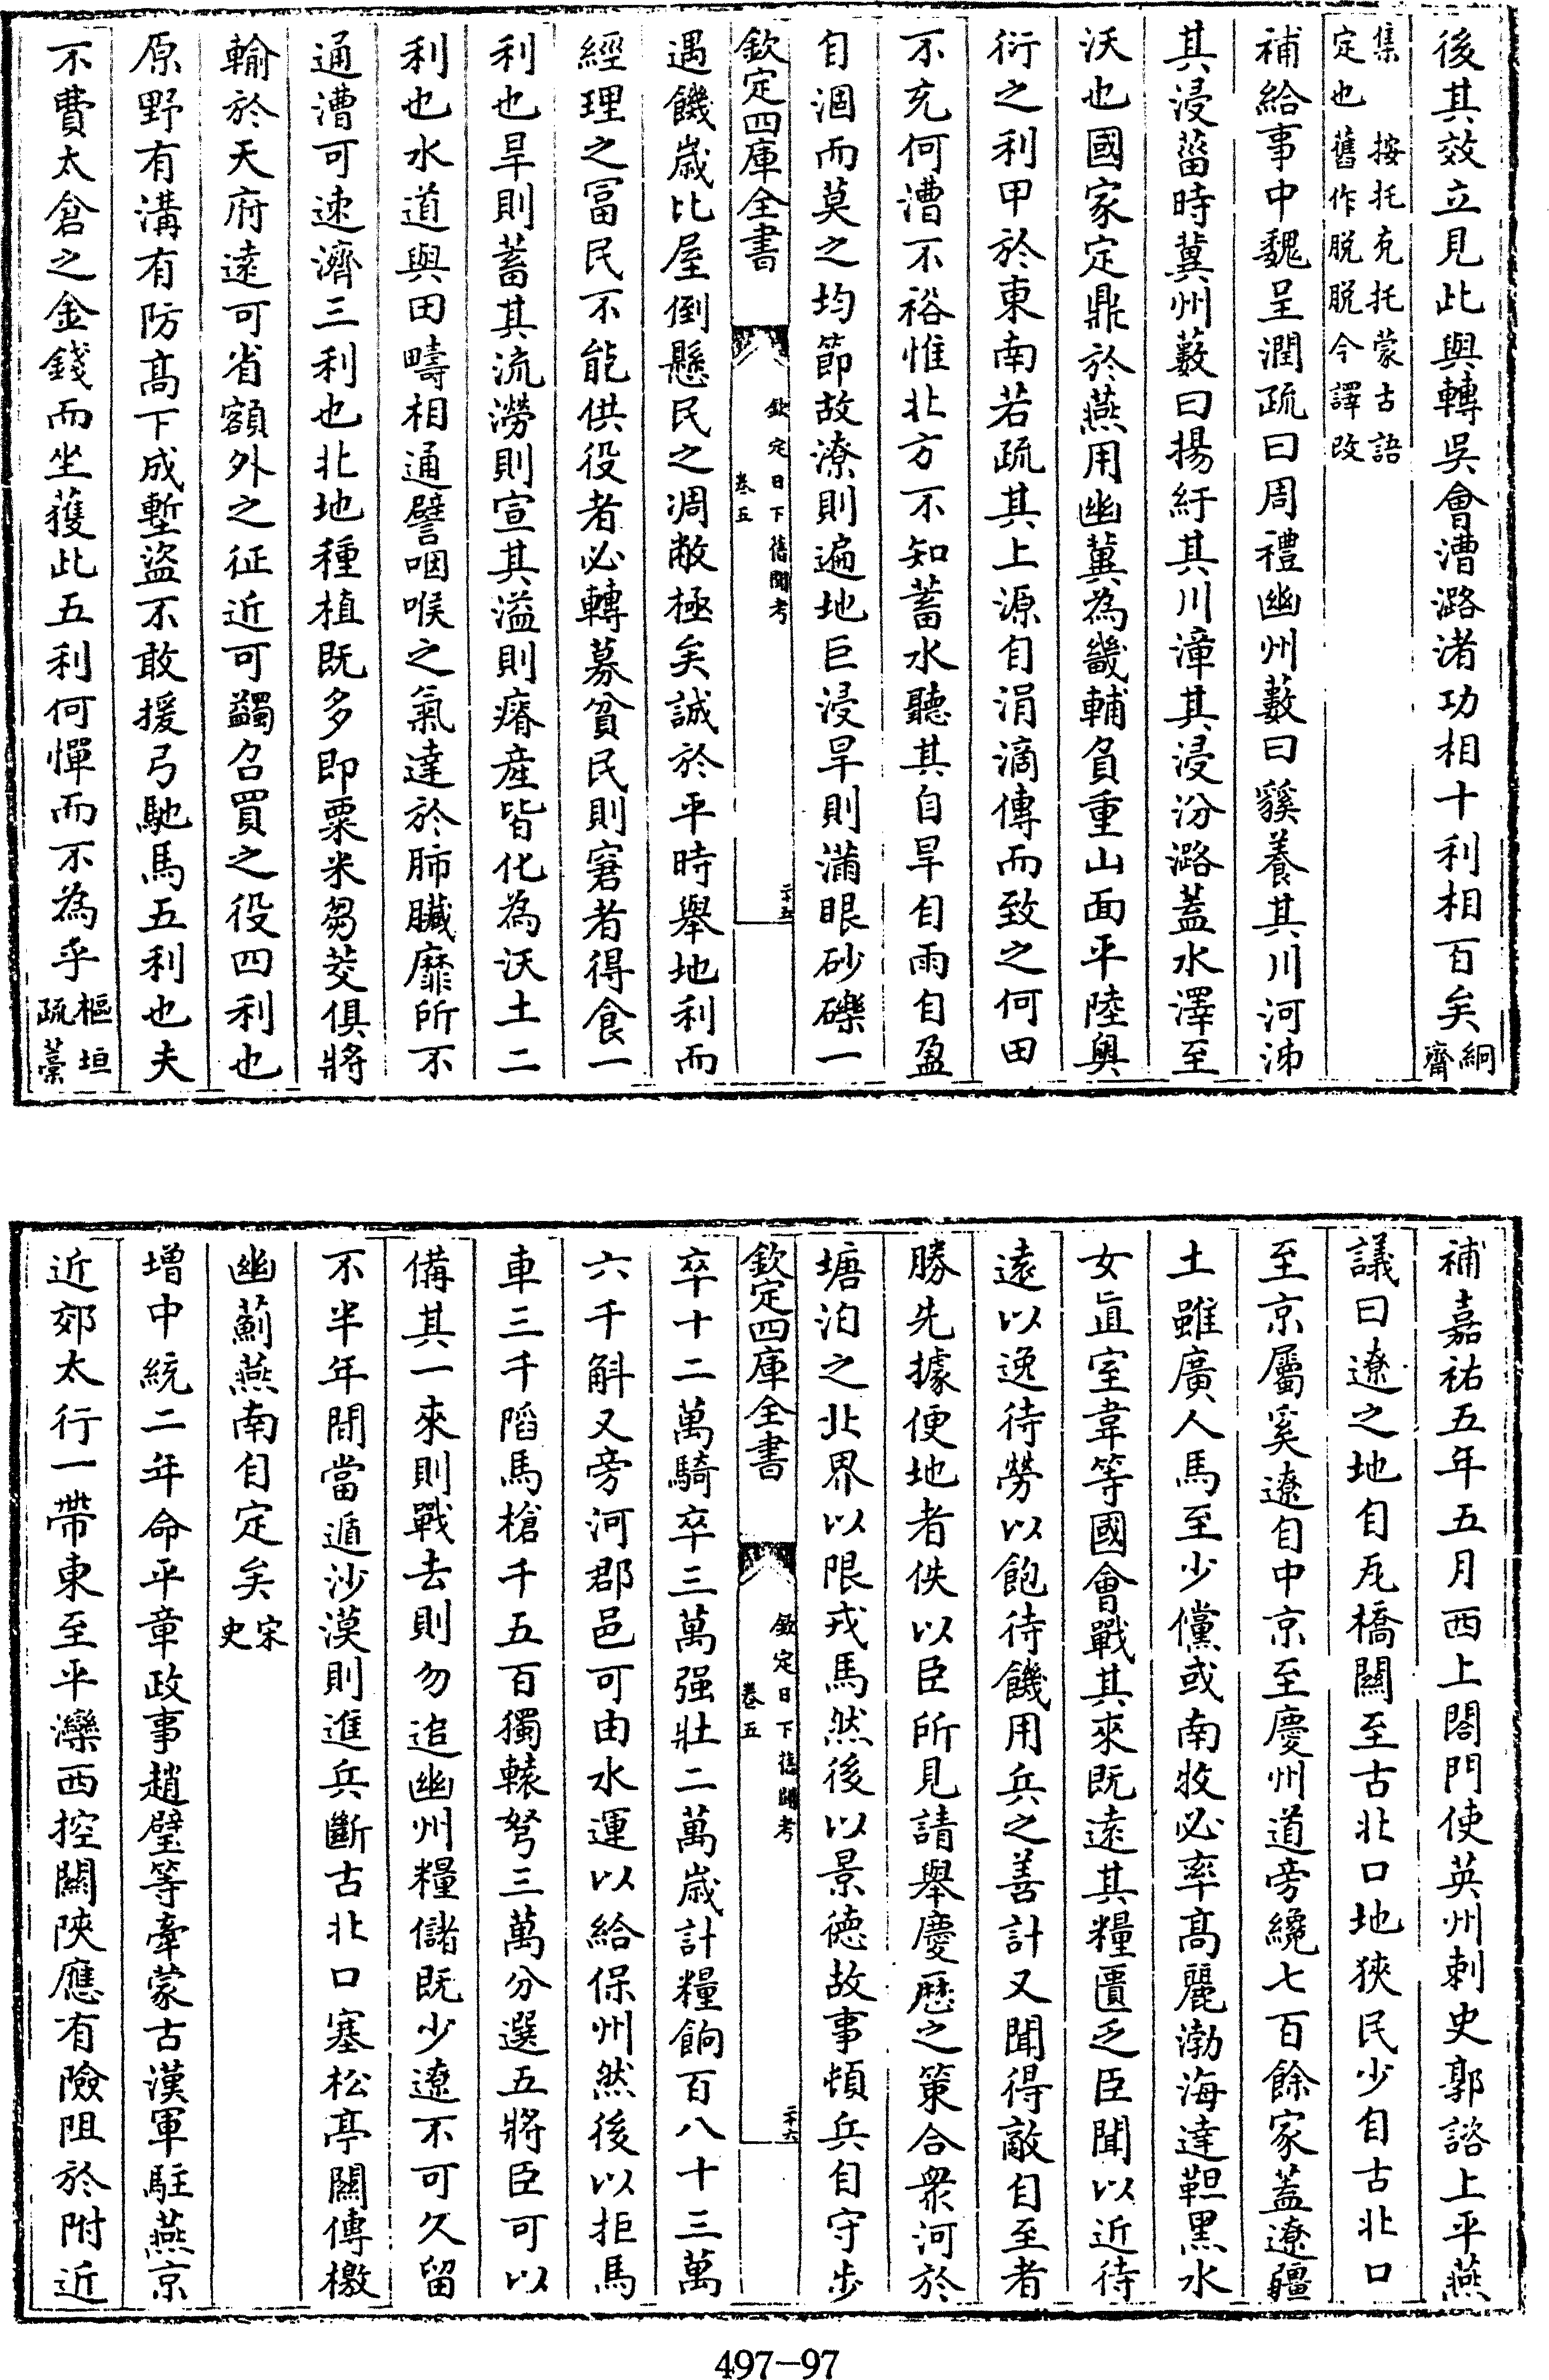 後其效立見此與轉吳會漕潞渚功相十利相百矣絅齋
集定也　按托克托蒙古語舊作脱脱今譯改
補給事中魏呈潤疏曰周禮幽州藪曰貕養其川河泲
其浸菑時冀州藪曰揚紆其川漳其浸汾潞蓋水澤至
沃也國家定鼎於燕用幽冀為畿輔負重山面平陸奥
衍之利甲於東南若疏其上源自涓滴傳而致之何田
不充何漕不裕惟北方不知蓄水聽其自旱自雨自盈
自涸而莫之均節故潦則遍地巨浸旱則滿眼砂礫一
欽定四庫全書　欽定日下舊聞考　卷五　二十五
遇饑歲比屋倒懸民之凋敝極矣誠於平時舉地利而
經理之冨民不能供役者必轉募貧民則窘者得食一
利也旱則蓄其流澇則宣其溢則瘠産皆化為沃土二
利也水道與田疇相通譬咽喉之氣達於肺臟靡所不
通漕可速濟三利也北地種植既多即粟米芻茭俱將
輸於天府遠可省額外之征近可蠲召買之役四利也
原野有溝有防髙下成塹盜不敢援弓馳馬五利也夫
不費太倉之金錢而坐獲此五利何憚而不為乎樞垣疏藁
補嘉祐五年五月西上閤門使英州刺史郭諮上平燕
議曰遼之地自瓦橋關至古北口地狹民少自古北口
至京屬奚遼自中京至慶州道旁纔七百餘家蓋遼疆
土雖廣人馬至少儻或南牧必率髙麗渤海達靼黒水
女眞室韋等國會戰其來既遠其糧匱乏臣聞以近待
遠以逸待勞以飽待饑用兵之善計又聞得敵自至者
勝先據便地者佚以臣所見請舉慶厯之策合衆河於
塘泊之北界以限戎馬然後以景德故事頓兵自守步
欽定四庫全書　欽定日下舊聞考　卷五　二十六
卒十二萬騎卒三萬强壯二萬歲計糧餉百八十三萬
六千斛又旁河郡邑可由水運以給保州然後以拒馬
車三千陷馬槍千五百獨轅弩三萬分選五將臣可以
備其一來則戰去則勿追幽州糧儲既少遼不可久留
不半年間當遁沙漠則進兵斷古北口塞松亭關傳檄
幽薊燕南自定矣宋史
増中統二年命平章政事趙璧等率蒙古漢軍駐燕京
近郊太行一帶東至平灤西控關陝應有險阻於附近
497-97